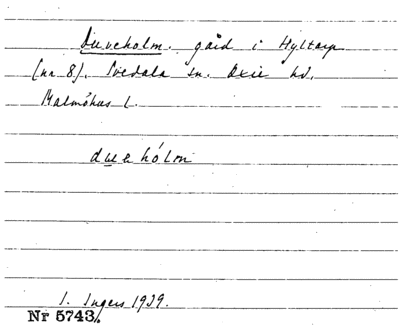 Duveholm. gård i Hyltarp
(nr 8). Svedala sn. Oxie hd.
Malmöhus l.
duehólm
I. Ingers 1939.
Nr 5743.